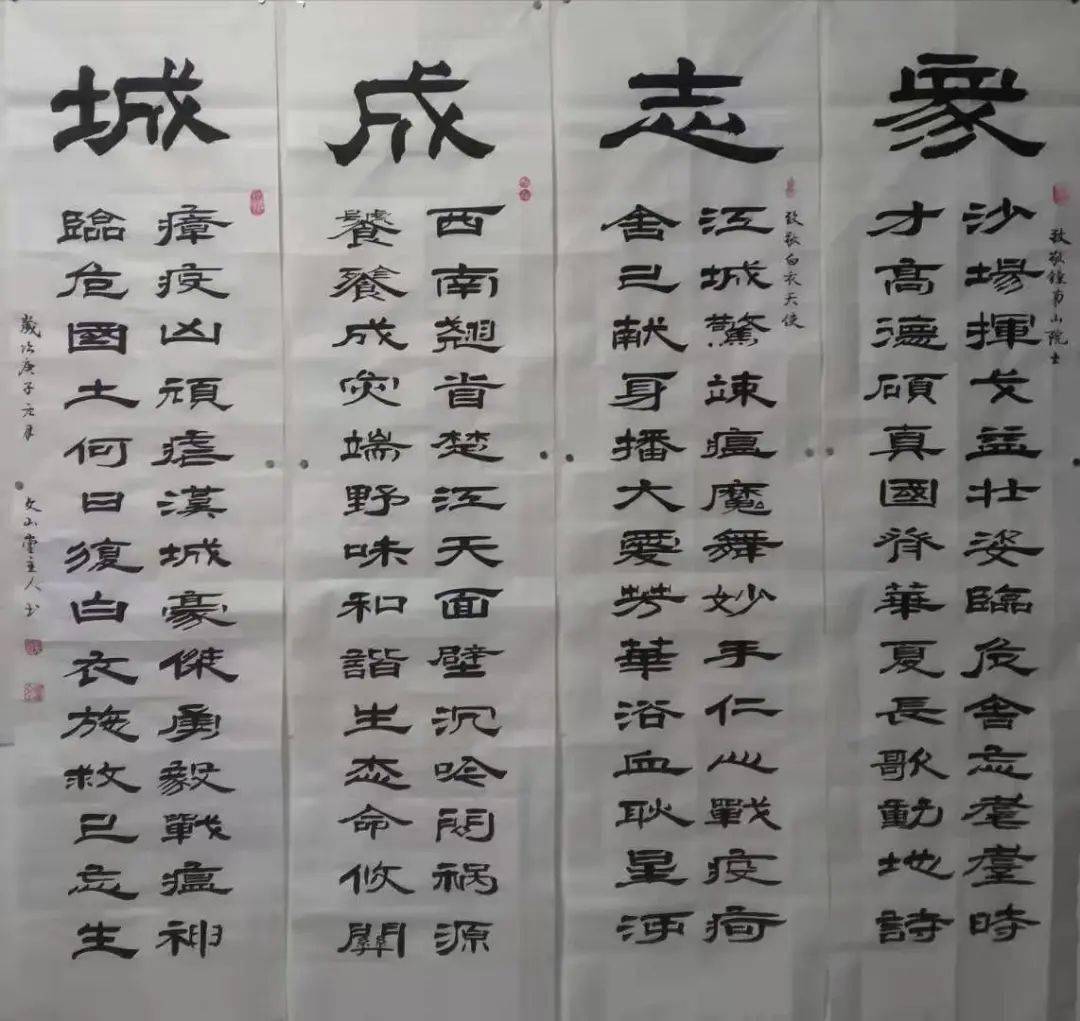 眾
致敬鐘南山院士
沙場揮戈益壯姿臨危舍忘耄耋時
才高德碩真國脊華夏長歌動地詩
志
致敬白衣天使
江城驚竦瘟魔舞妙手仁心戰疫疴
舍己献身播大愛芳華浴血耿星河
成
西南翘首楚江天面壁沉吟問祸源
饕餮成灾端野味和諧生态命攸關
城
瘴疫凶頑虐漢城豪傑勇毅戰瘟神
臨危國土何日復白衣施救已忘生
歲次庚子元月
文山堂主人书